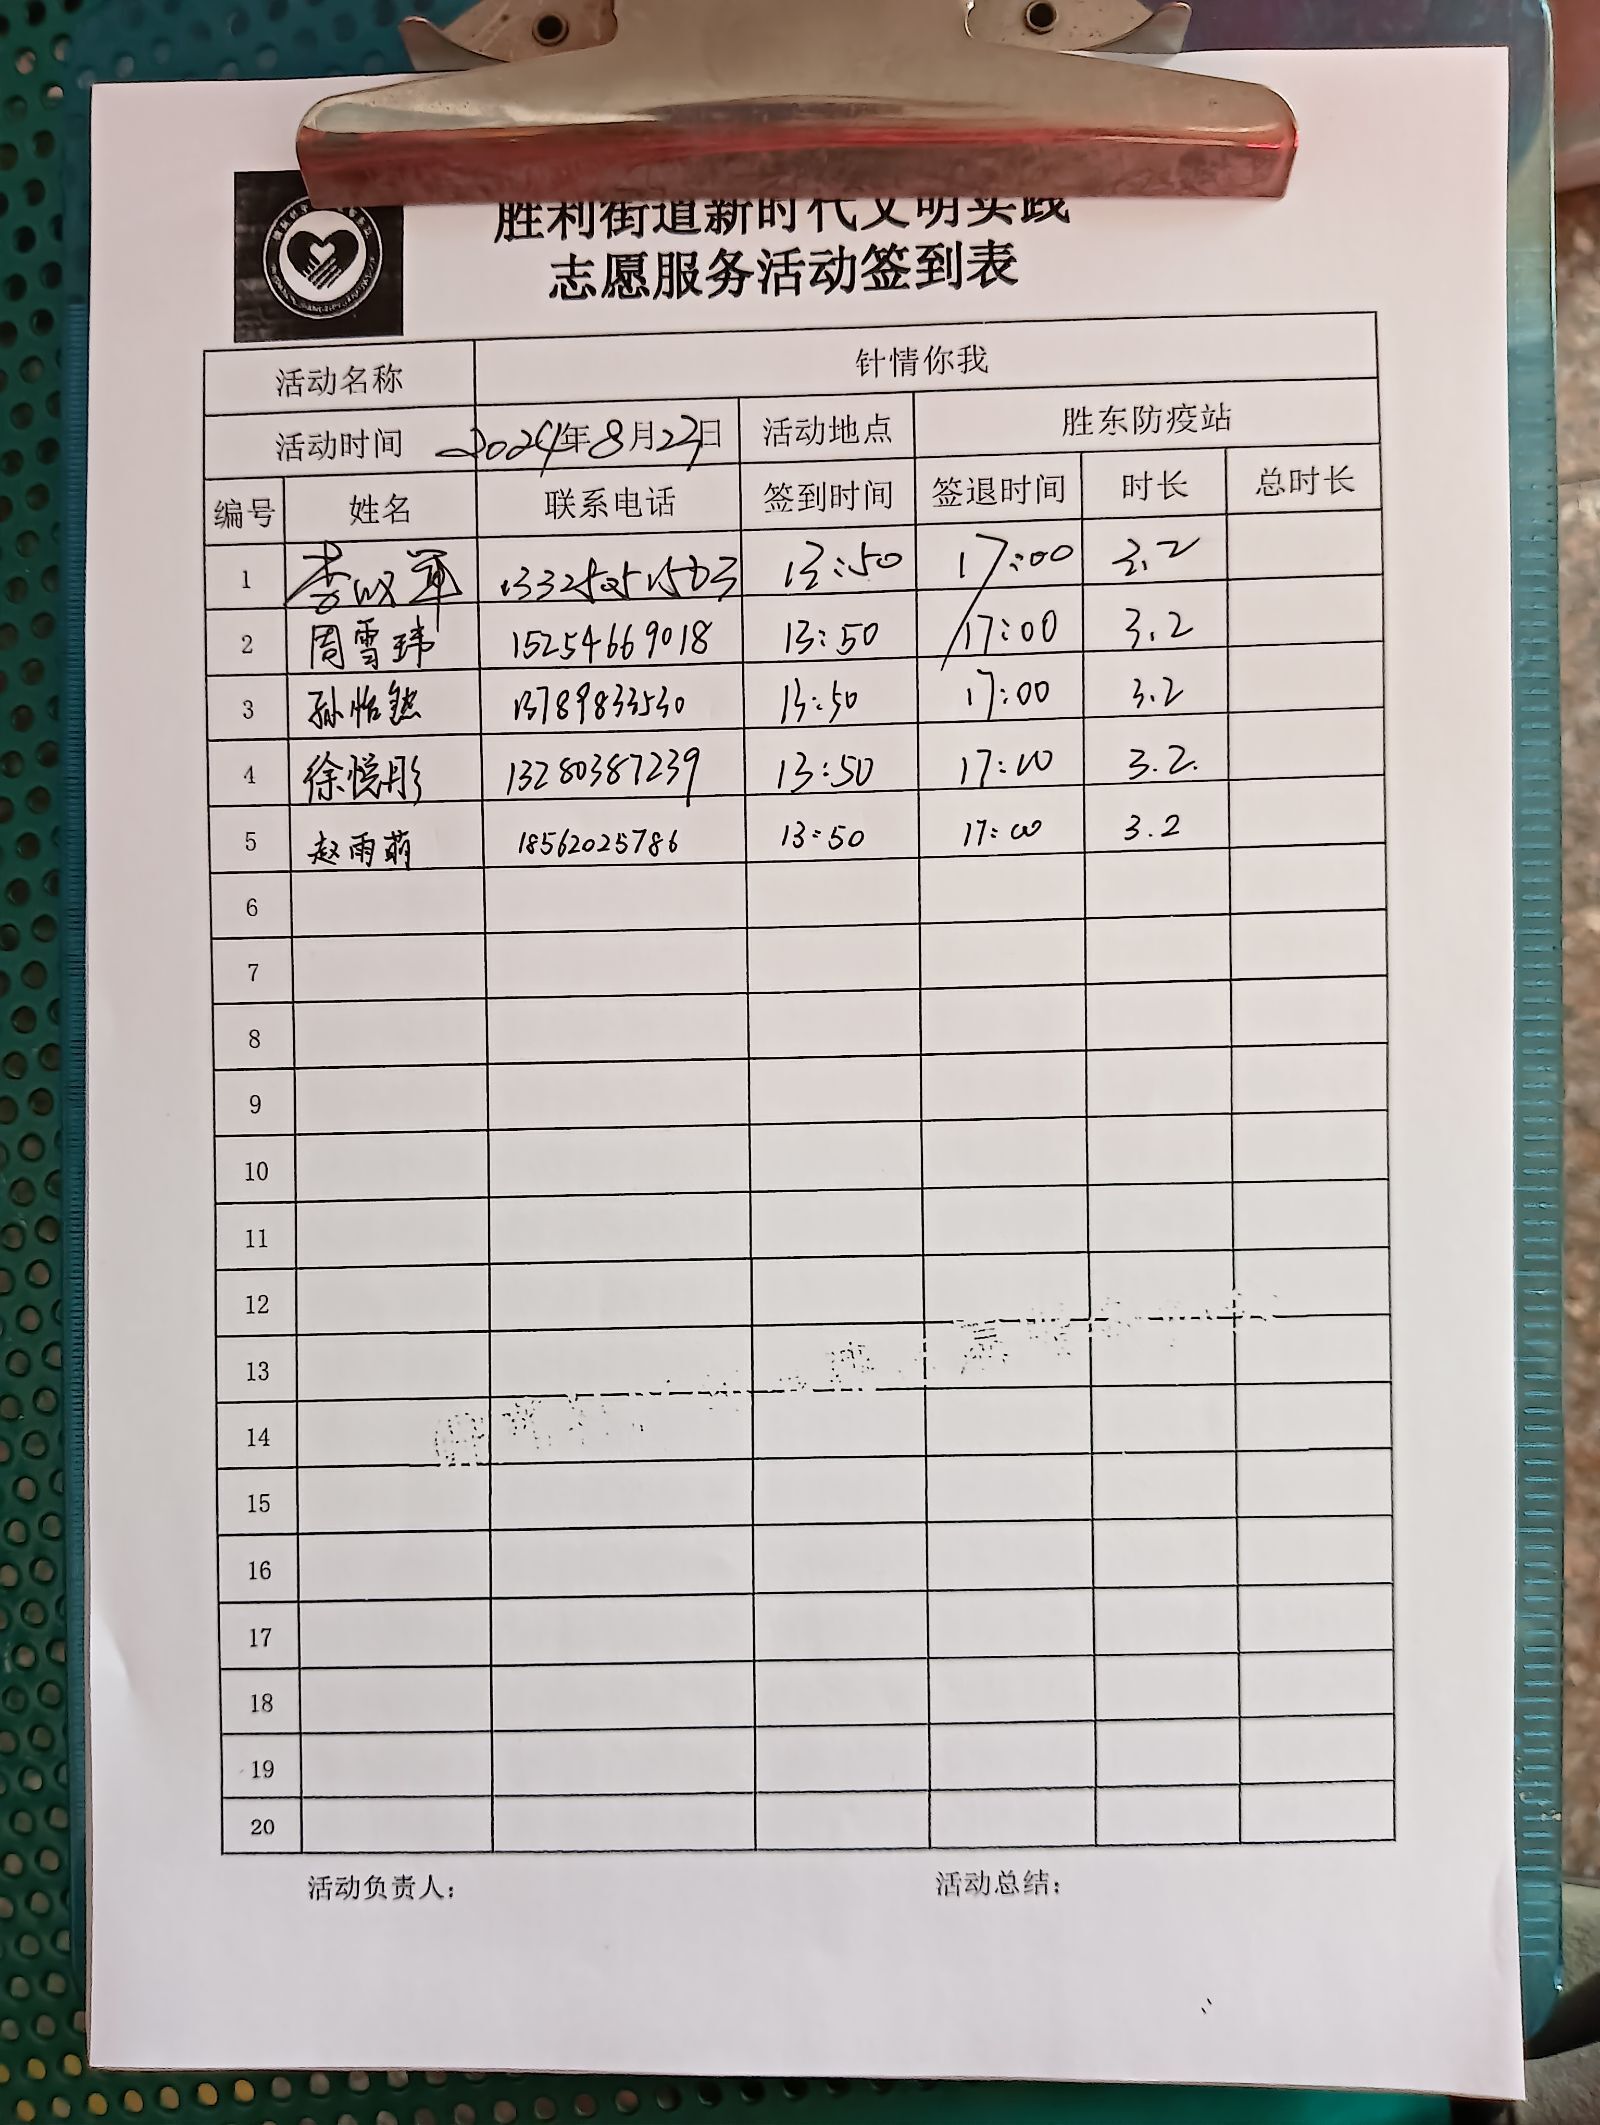 胜利街道新时代文明实践
志愿服务活动签到表
活动名称 针情你我
活动时间 2024年8月23日 活动地点 胜东防疫站
编号 姓名 联系电话 签到时间 签退时间 时长 总时长
1 李 13:50 17:00 3.2
2 周雪玮 15254669018 13:50 17:00 3.2
3 孙怡然 13789833530 13:50 17:00 3.2
4 徐悦彤 13280387239 13:50 17:00 3.2.
5 赵雨萌 18562025786 13:50 17:00 3.2
6
7
8
9
10
11
12
13
14
15
16
17
18
19
20
活动负责人： 活动总结：